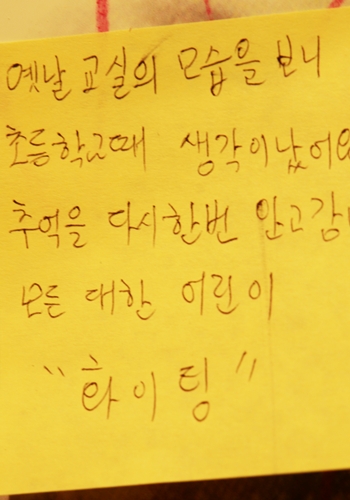 옛날 교실의 모습을 보니
초등학교때 생각이 났어요
추억을 다시한번 안고감
모든 대한 어린이
"화이팅"